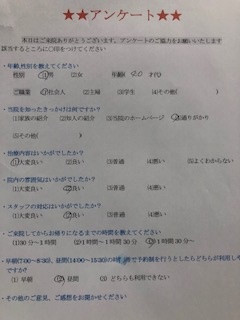 ★★アンケート★★
本日はご来院ありがとうございます。アンケートのご協力をお願いいたします
該当するところに○印をつけてください
・年齢,性別を教えてください
性別 (1)男 (2)女 年齢( 20 才代)
ご職業 (1)社会人 (2)主婦 (3)学生 (4)その他( )
・当院を知ったきっかけは何ですか？
(1)家族の紹介 (2)知人の紹介 (3)当院のホームページ (4)通りがかり
(5)その他( )
・他療内容はいかがでしたか？
(1)大変良い (2)良い (3)普通 (4)悪い (5)よくわからない
・院内の雰囲気はいかがでしたか？
(1)大変良い (2)良い (3)普通 (4)悪い
・スタッフの対応はいかがでしたか？
(1)大変良い (2)良い (3)普通 (4)悪い
・ご来院してからお帰りになるまでの時間を教えてください
(1)30分～1時間 (2)1時間～1時間30分 (3)1時間30分～
・早朝(7:00～8:30)、昼間(14:00～15:30)の時間で予約制を行うとしたらどちらが利用しや
ですか？
(1) 早朝 (2) 昼間 (3) どちらも利用できない
・その他のご意見、ご感想をお聞かせください